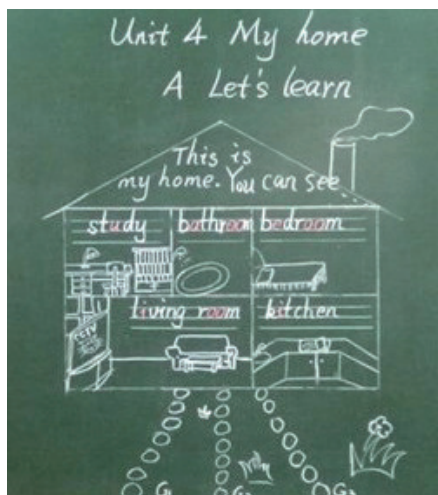 Unit 4 My home
A Let's learn
This is
my home. You can see
study bathroom bedroom
living room kitchen
CCTV